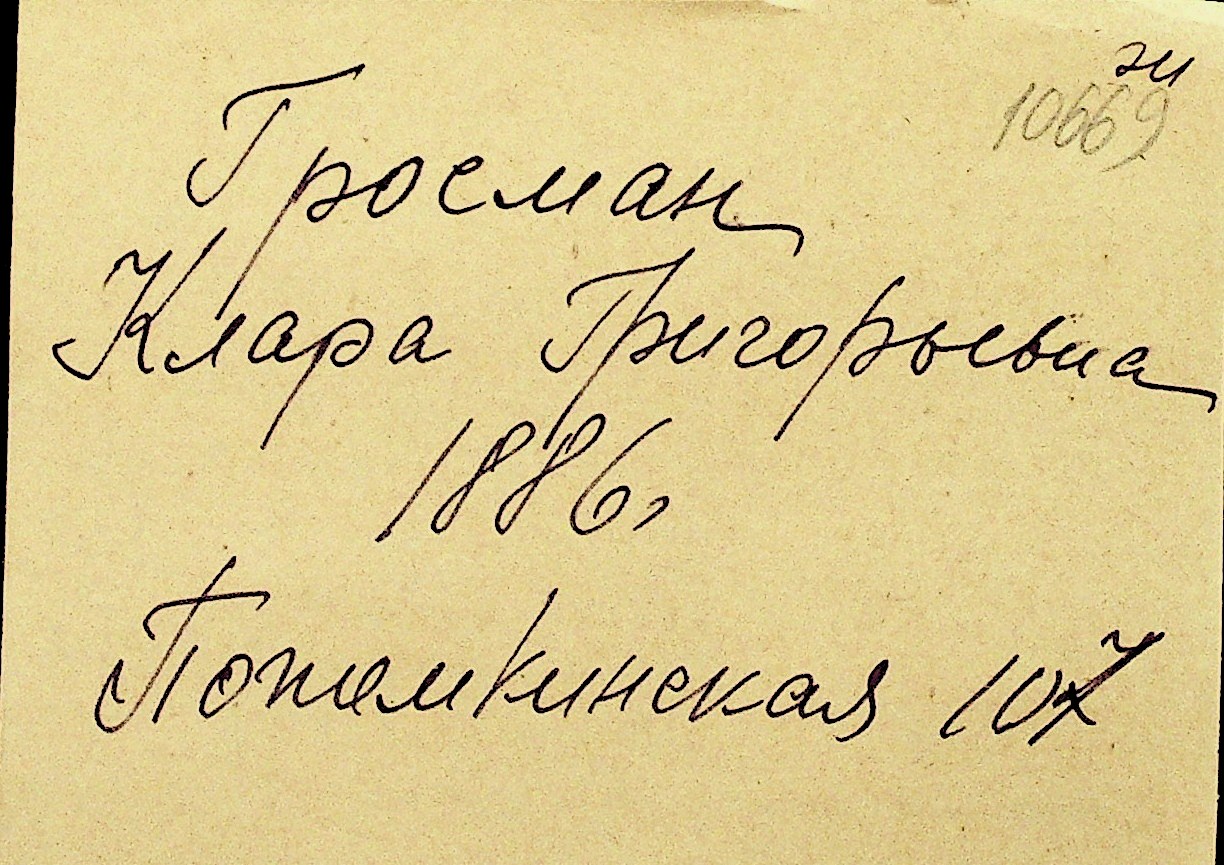 10669
Гросман
Клара Григорьевна
1886,
Потемкинская 107